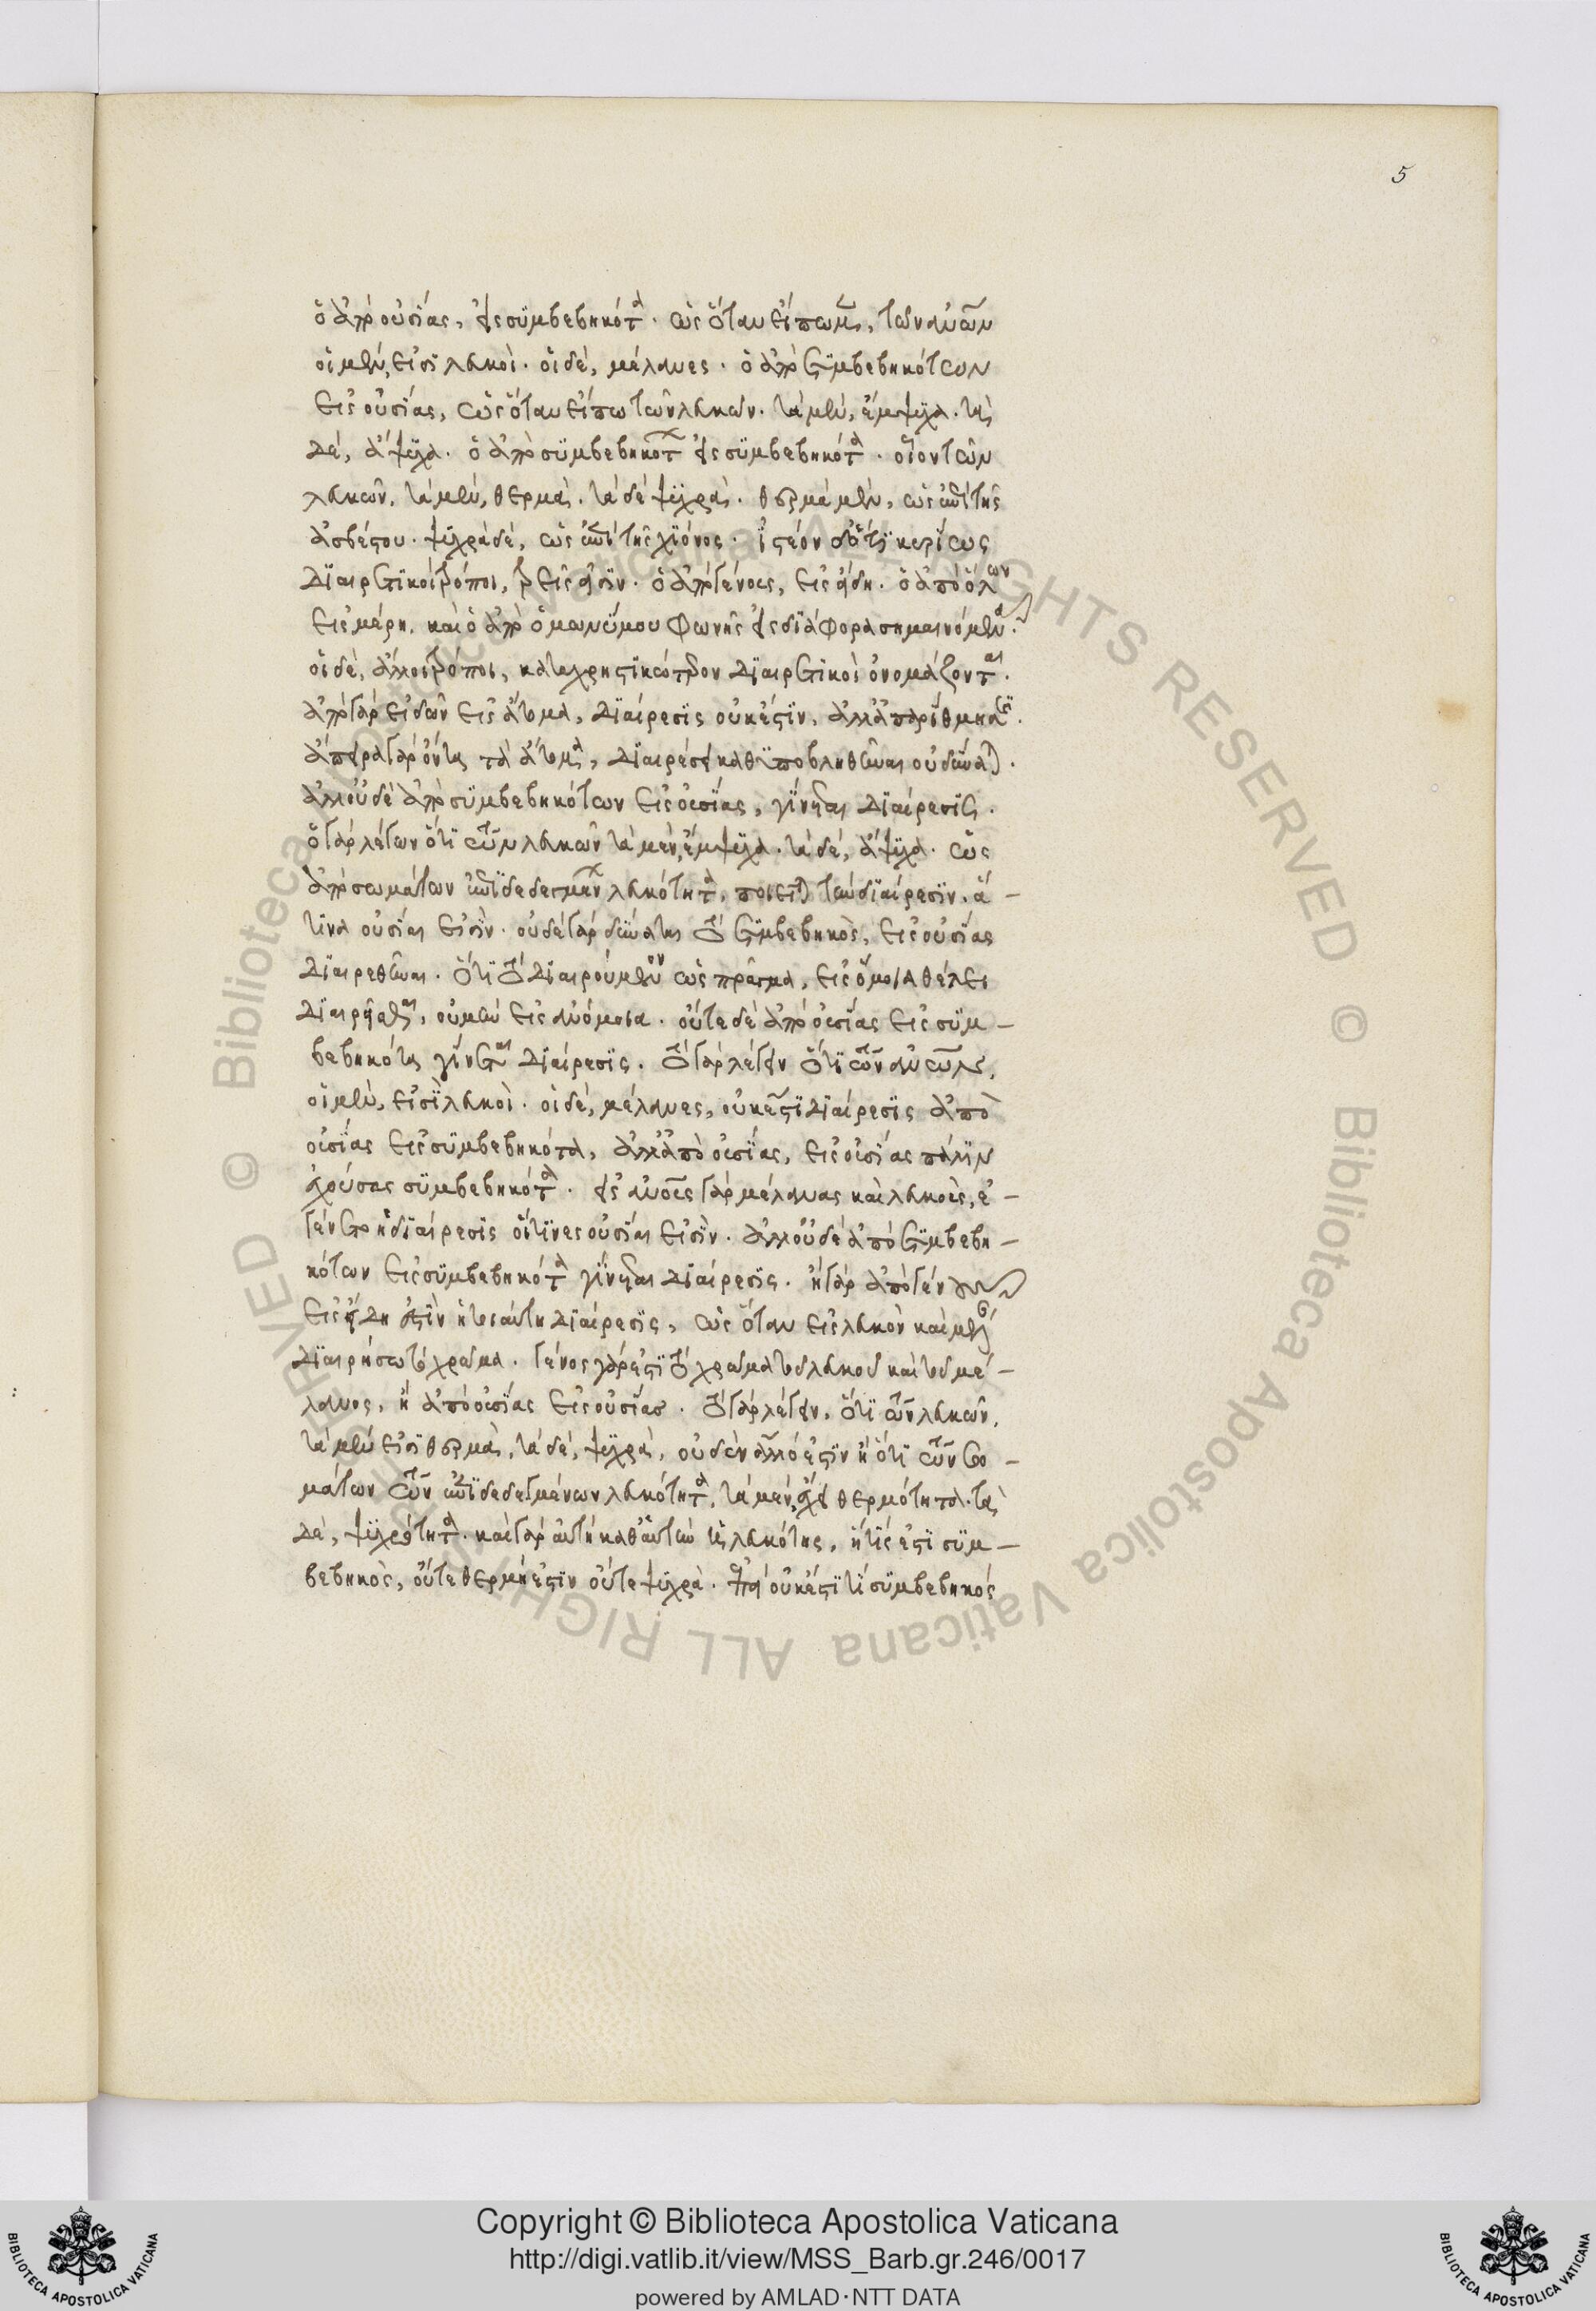 5
ὁ ἀπὸ οὐσίας, εἰς συμβεβηκότα. ὡς ὅταν εἴπωμεν, τῶν ἀνῶν
οἱ μὲν, εἰσὶ λευκοὶ. οἱ δὲ, μέλανες. ὁ ἀπὸ συμβεβηκότων
εἰς οὐσίας, ὡς ὅταν εἴπω τῶν λευκῶν. τὰ μὲν, ἔμψυχα. τὰ
δὲ, ἄψυχα. ὁ ἀπὸ συμβεβηκότων εἰς συμβεβηκότα. οἷον τῶν
λευκῶν, τὰ μὲν, θερμὰ. τὰ δὲ ψυχρὰ. θερμὰ μὲν, ὡς ἐπὶ τῆς
ἀσβέστου. ψυχρὰ δὲ, ὡς ἐπὶ τῆς χιόνος. ἰστέον ὅτι κυρίως
διαιρετικοὶ τρόποι, τρεῖς εἰσὶν. ὁ ἀπὸ γένους, εἰς εἴδη. ὁ ἀπὸ ὅλων
εἰς μέρη. καὶ ὁ ἀπὸ ὁμωνύμου φωνῆς εἰς διάφορα σημαινόμενα.
οἱ δὲ, ἄλλοι τρόποι, καταχρηστικώτερον διαιρετικοὶ ὀνομάζονται.
ἀπὸ γὰρ εἰδῶν εἰς ἄτομα, διαίρεσις οὐκ ἔστιν, ἀλλ' ἀπαρίθμησις.
ἄπειρα γὰρ ὄντα τὰ ἄτομα, διαιρέσει καθυποβληθῆναι οὐ δύναται.
ἀλλ' οὐδὲ ἀπὸ συμβεβηκότων εἰς οὐσίας, γίνεται διαίρεσις.
ὁ γὰρ λέγων ὅτι τῶν λευκῶν τὰ μὲν, ἔμψυχα. τὰ δὲ, ἄψυχα. ὡς
ἀπὸ σωμάτων ἐπιδεδεγμένων λευκότητα, ποιεῖται τὴν διαίρεσιν. ἅ-
τινα οὐσίαι εἰσὶν. οὐδὲ γὰρ δύναται τὸ συμβεβηκὸς, εἰς οὐσίας
διαιρεθῆναι. ὅτι τὸ διαιρούμενον ὡς πρᾶγμα, εἰς ὅμοια θέλει
διαιρεῖσθαι, οὐ μὴν εἰς ἀνόμοια. οὔτε δὲ ἀπὸ οὐσίας εἰς συμ-
βεβηκότα γίνεται διαίρεσις. τὸ γὰρ λέγειν ὅτι τῶν ἀνῶν,
οἱ μὲν, εἰσὶ λευκοὶ. οἱ δὲ, μέλανες, οὐκ ἔστι διαίρεσις ἀπὸ
οὐσίας εἰς συμβεβηκότα, ἀλλ' ἀπὸ οὐσίας, εἰς οὐσίας πάλιν
ἐχούσας συμβεβηκότα. εἰς ἀνοὺς γὰρ μέλανας καὶ λευκοὺς, ἐ-
γένετο ἡ διαίρεσις οἵτινες οὐσίαι εἰσὶν. ἀλλ' οὐδὲ ἀπὸ συμβεβη-
κότων εἰς συμβεβηκότα γίνεται διαίρεσις. ἢ γὰρ ἀπὸ γένους
εἰς εἴδη ἐστὶν ἡ τοιαύτη διαίρεσις, ὡς ὅταν εἰς λευκὸν καὶ μέλαν
διαιρήσω τὸ χρῶμα. γένος γὰρ ἐστὶ τὸ χρῶμα τοῦ λευκοῦ καὶ τοῦ μέ-
λανος, ἢ ἀπὸ οὐσίας εἰς οὐσίας. τὸ γὰρ λέγειν, ὅτι τῶν λευκῶν,
τὰ μὲν εἰσὶ θερμὰ, τὰ δὲ, ψυχρὰ, οὐδὲν ἄλλό ἐστιν ἢ ὅτι τῶν σω-
μάτων τῶν ἐπιδεδεγμένων λευκότητα, τὰ μὲν, ἔχει θερμότητα. τὰ
δὲ, ψυχρότητα. καὶ γὰρ αὐτὴ καθ' αὑτὴν ἡ λευκότης, ἥτις ἐστὶ συμ-
βεβηκὸς, οὔτε θερμή ἐστιν οὔτε ψυχρὰ. ἐπεὶ οὐκ ἔστι τί συμβεβηκός
Copyright © Biblioteca Apostolica Vaticana
http://digi.vatlib.it/view/MSS_Barb.gr.246/0017
powered by AMLAD·NTT DATA